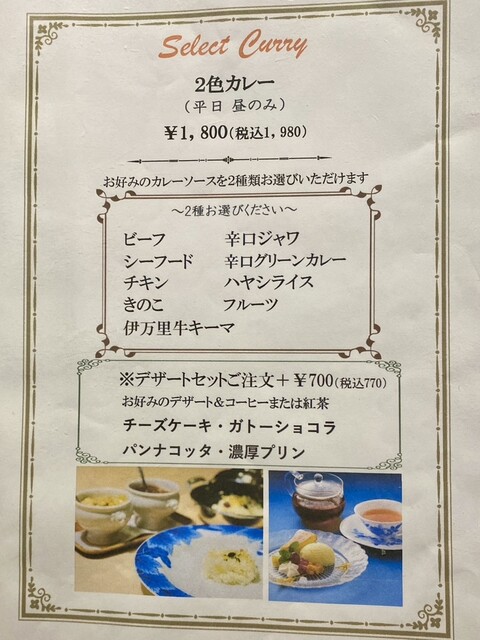 Select Curry
2色カレー
(平日 昼のみ)
¥1,800(税込1,980)
お好みのカレーソースを2種類お選びいただけます
～2種お選びください～
ビーフ 辛口ジャワ
シーフード 辛口グリーンカレー
チキン ハヤシライス
きのこ フルーツ
伊万里牛キーマ
※デザートセットご注文＋¥700(税込770)
お好みのデザート＆コーヒーまたは紅茶
チーズケーキ・ガトーショコラ
パンナコッタ・濃厚プリン